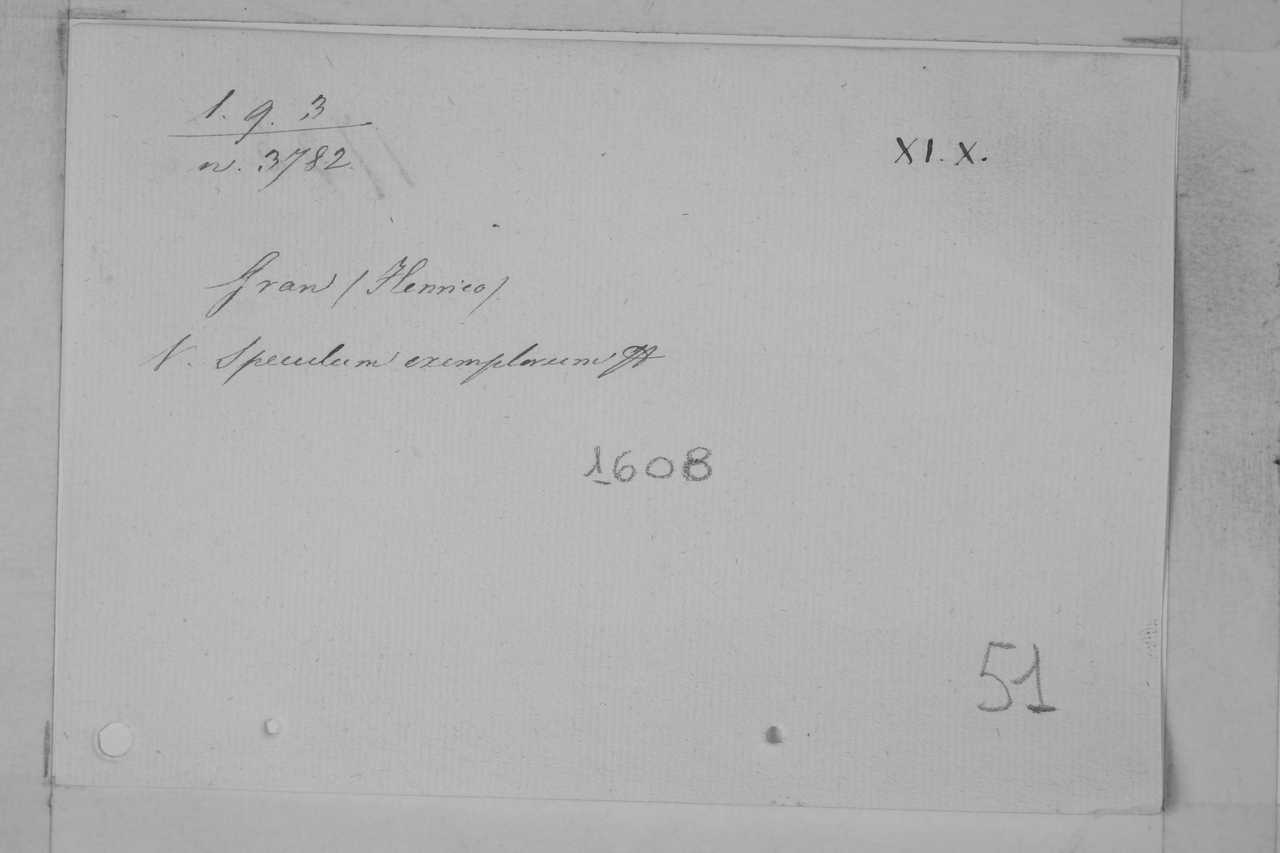 1. 9. 3
n. 3782
XI. X.
Gran (Henrico)
V. Speculum exemplorum
1608
51